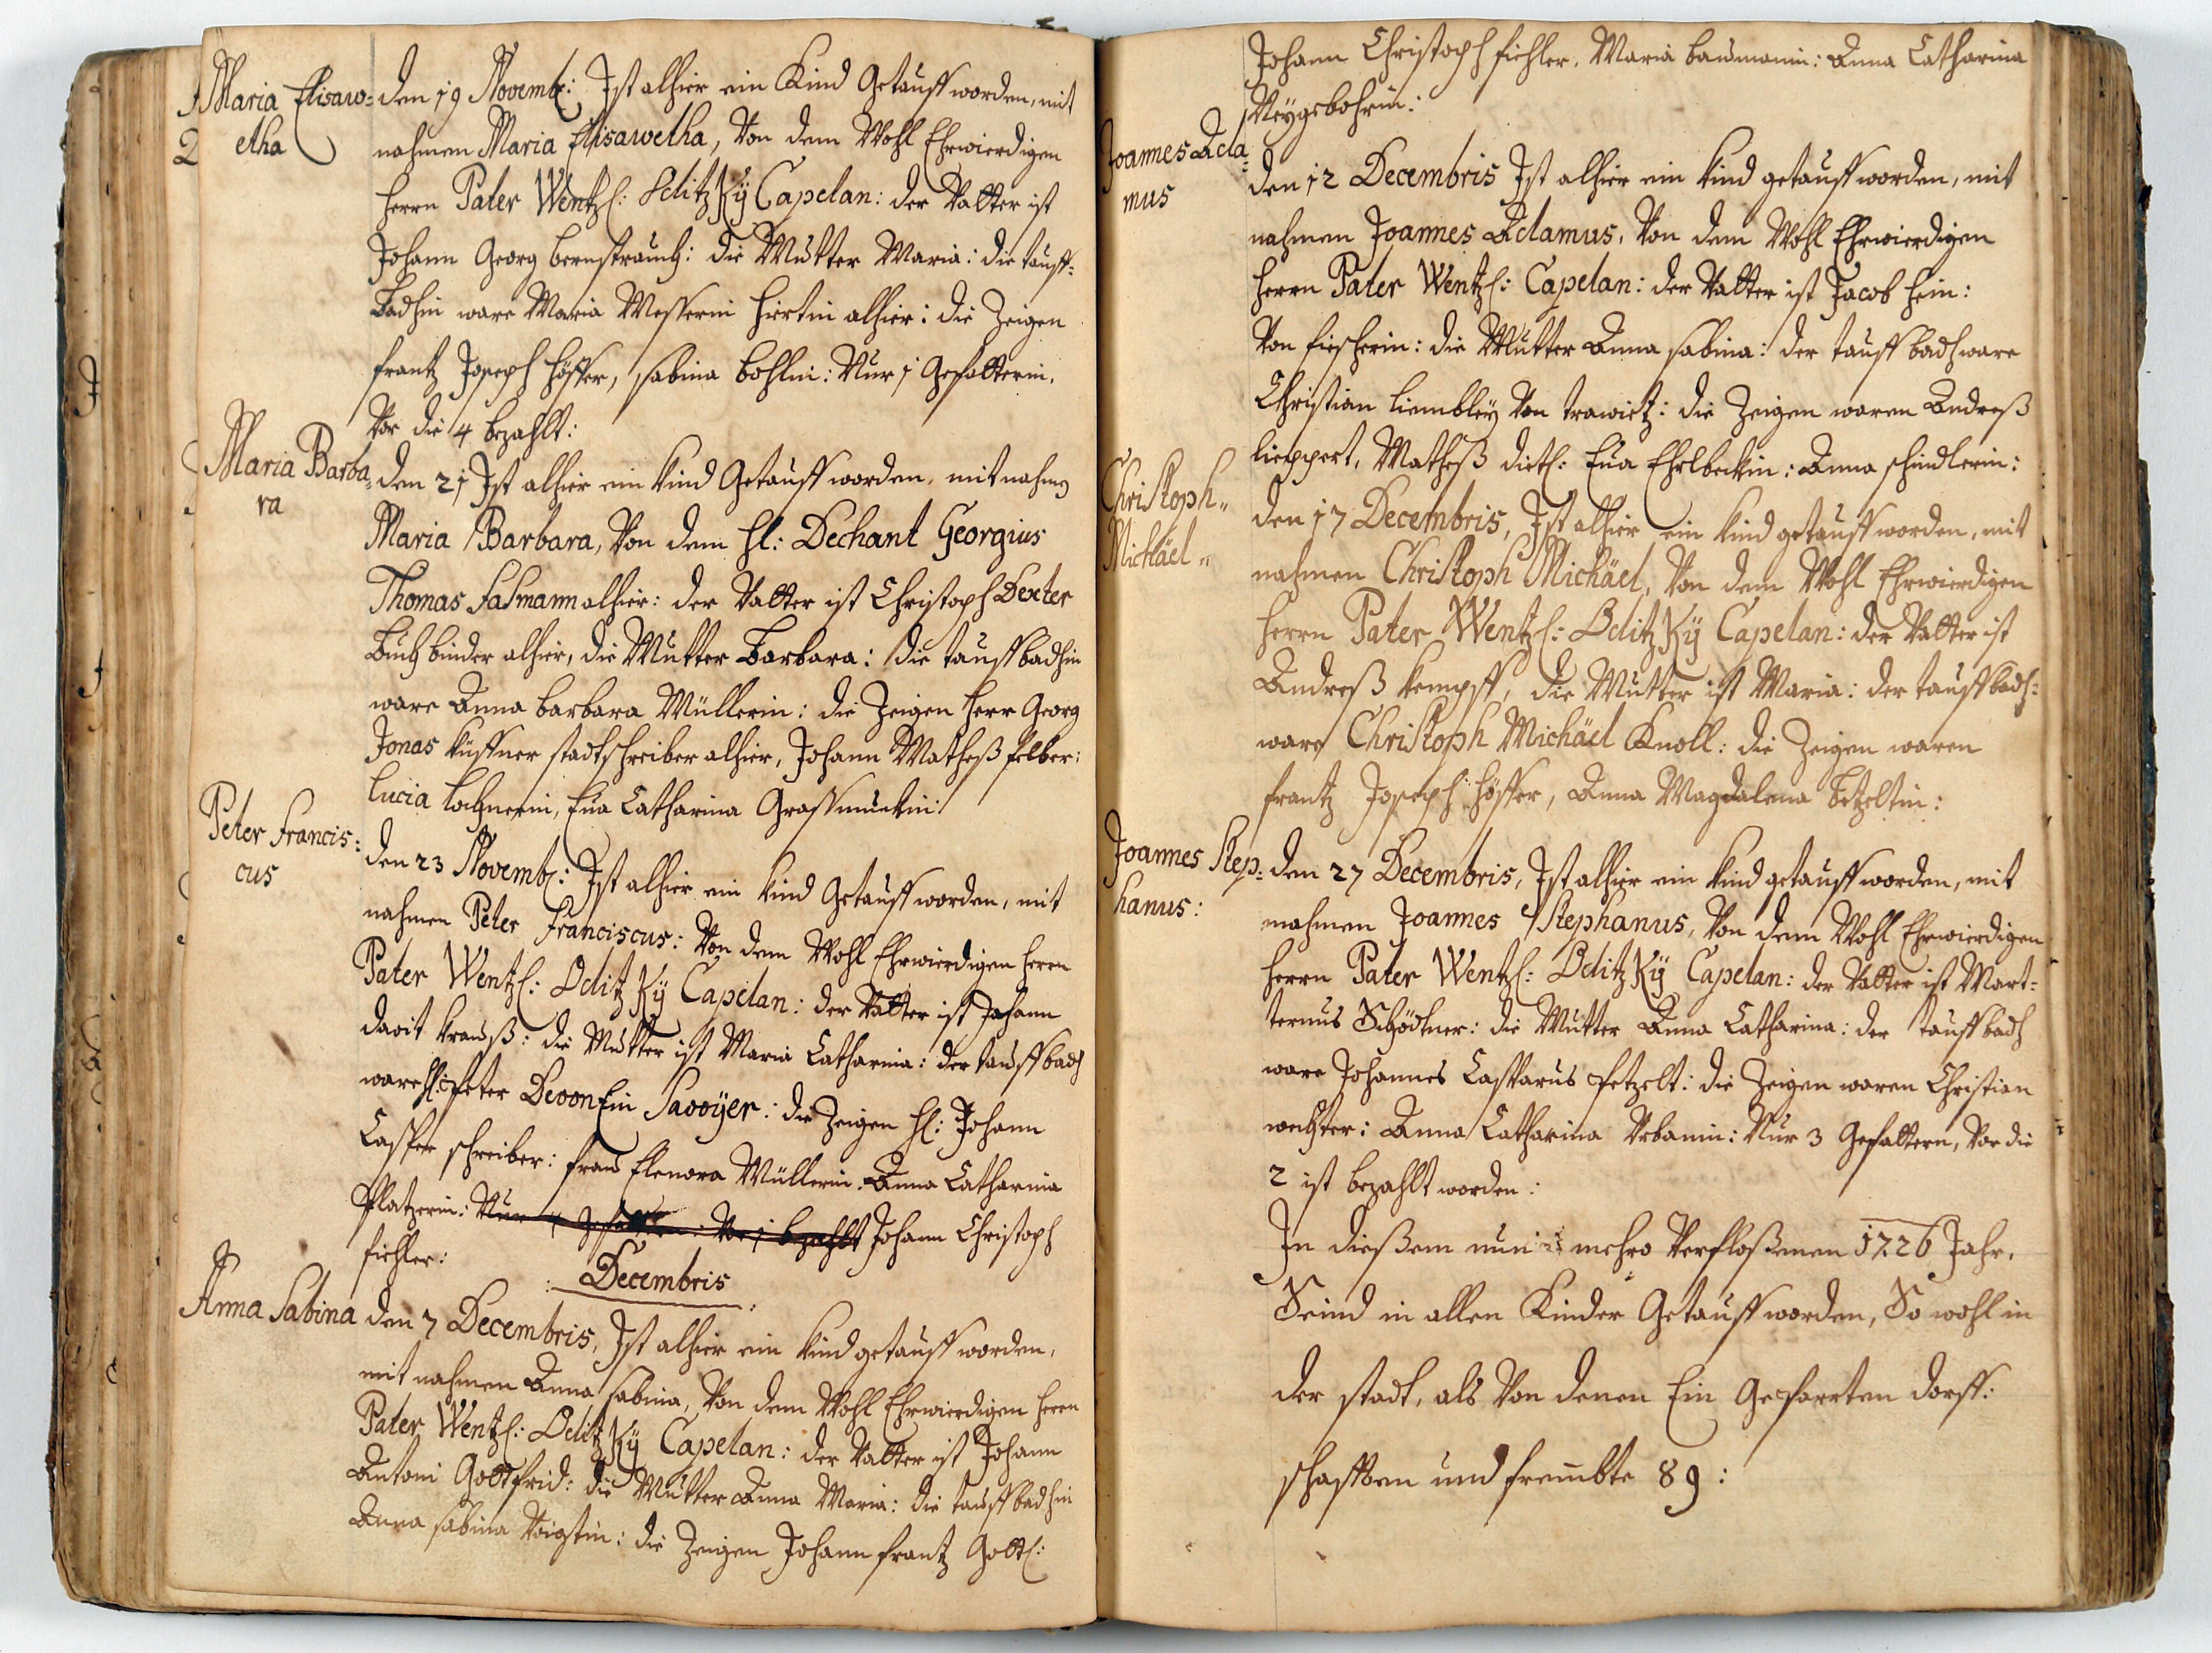 Maria Elisaw=
etha
den 19 Novemb: Ist alhier ein Kind Getaufft worden, mit
nahmen Maria Elisawetha, Von dem Wohl Ehrwierdigen
herrn Pater Wentzl: Odlitzkÿ Capelan: der Vatter ist
Johann Georg bernstrauch: die Mutter Maria: die tauff=
badhin ware Maria Messerin hiertin alhier: die Zeigen
frantz Joseph höffer, sabina bohlin: Nur 1 Gefatterin.
Vor die 4 bezahlt:
Maria Barba=
ra
den 21 Ist alhier ein kind Getaufft worden, mit nahmen
Maria Barbara, Von dem hl: Dechant Georgius
Thomas Fasmann alhier: der Vatter ist Christoph Dexter
Buchbinder alhier, die Mutter Barbara: die tauffbadhin
ware Anna barbara Müllerin: die Zeigen herr Georg
Jonas küffner stadtschreiber alhier, Johann Matheß felber:
Lucia lochnerin, Eua Catharina Grassmuckin:
Peter Francis:
cus
den 23 Novemb: Ist alhier ein kind Getaufft worden, mit
nahmen Peter Franciscus: Von dem Wohl Ehrwierdigen herrn
Pater Wentzl: Odlitzkÿ Capelan: der Vatter ist Johann
davit krauß: die Mutter ist Maria Catharina: der tauffbadh
ware hl: Peter Devon Ein Savoÿer: die Zeigen hl: Johann
Casper schreiber: frau Elenora Müllerin. Anna Catharina
Platzerin: Nur 4 gefattern: Vor 1 bezahlt Johann Christoph
fichler:
Decembris
Anna Sabina
den 7 Decembris, Ist alhier ein kind getaufft worden,
mit nahmen Anna sabina, Von dem Wohl Ehrwierdigen herrn
Pater Wentzl: Odlitzkÿ Capelan: der Vatter ist Johann
Antoni Gottfrid: die Mutter Anna Maria: die tauffbadhin
Anna sabina Voigtin: die Zeigen Johann frantz Gottl:
Johann Christoph fichler, Maria baumanin: Anna Catharina
Neÿgebohrin:
Joannes Ada=
mus
den 12 Decembris Ist alhier ein kind getaufft worden, mit
nahmen Joannes Adamus, Von dem Wohl Ehrwierdigen
herrn Pater Wentzl: Capelan: der Vatter ist Jacob hein:
Von fischerin: die Mutter Anna sabina: der tauff badh ware
Christian liembleÿ Von trawitz: die Zeigen waren Andreß
lippert, Matheß dietl: Eua Ehrlbeckin: Anna schindlerin:
Christoph
Michäel
den 17 Decembris, Ist alhier ein kind getaufft worden, mit
nahmen Christoph Michäel, Von dem Wohl Ehrwierdigen
herrn Pater Wentzl: Odlitzkÿ Capelan: der Vatter ist
Andreß kempff, die Mutter ist Maria: der tauffbadh=
ware Christoph Michäel Knoll: die Zeigen waren
frantz Joseph höffer, Anna Magdalena betzeltin:
Joannes Step=
hanus:
den 27 Decembris, Ist alhier ein kind getaufft worden, mit
nahmen Joannes Stephanus, Von dem Wohl Ehrwierdigen
herrn Pater Wentzl: Odlitzkÿ Capelan: der Vatter ist Mart=
ternus Schödtner: die Mutter Anna Catharina: der tauffbadh
ware Johannes Casparus Petzelt: die Zeigen waren Christian
wechter: Anna Catharina Vrbanin: Nur 3 Gefattern, Vor die
2 ist bezahlt worden:
In dießem nun mehro Verfloßenen 1726 Jahr.
Seind in allen Kinder Getaufft worden, So wohl in
der stadt, als Von denen Ein Gepfarrten dorff:
schafften und frembte 89: